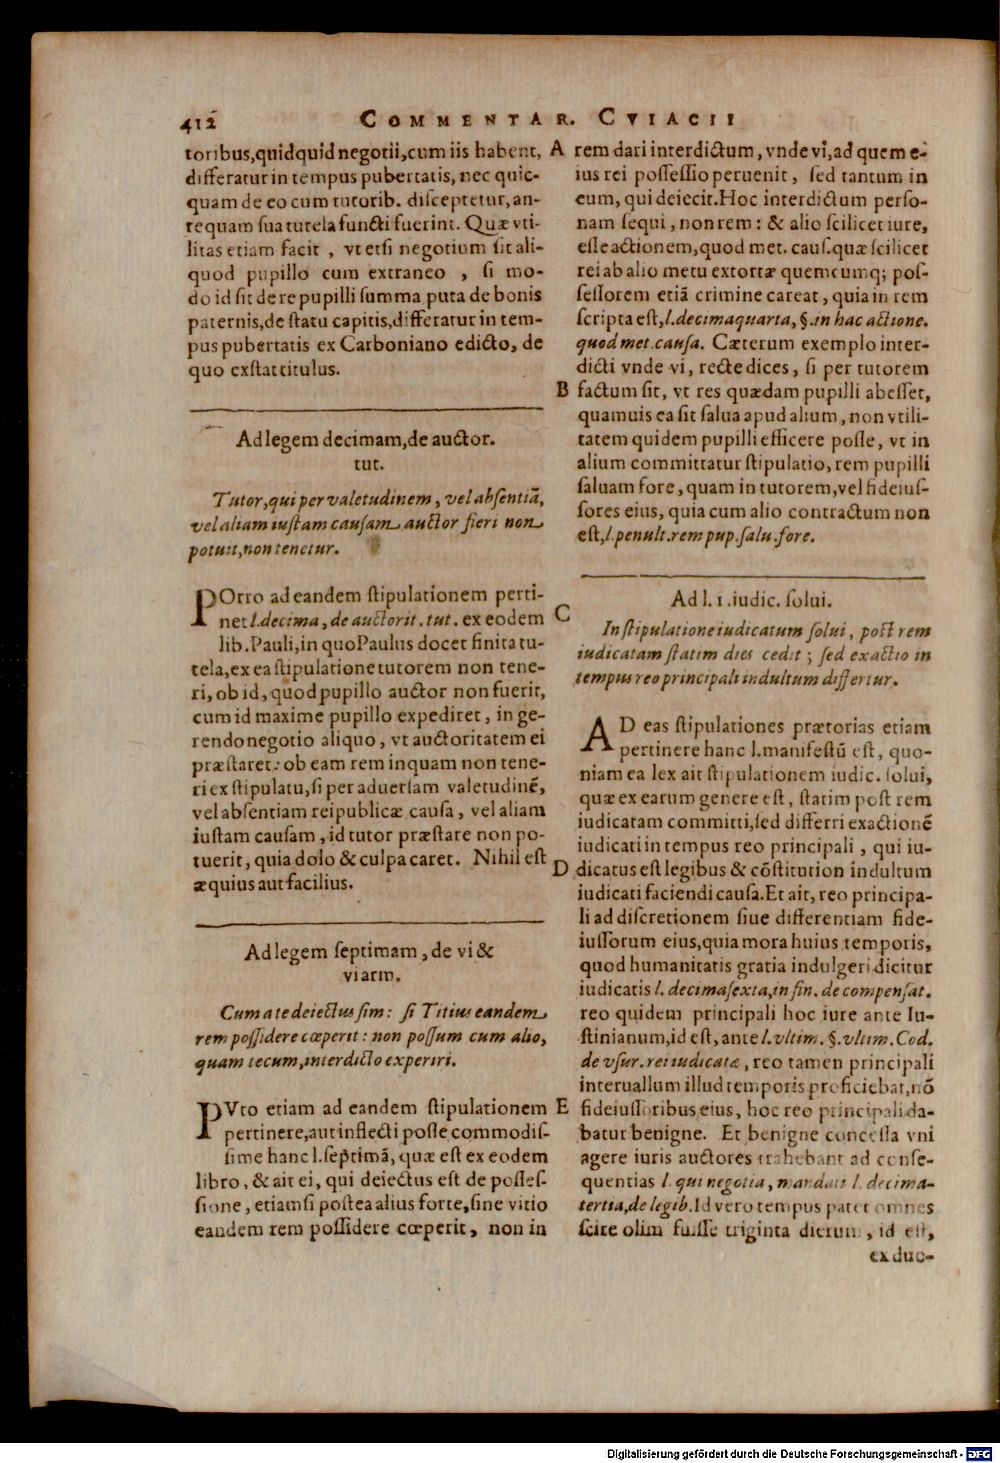 412 COMMENTAR. CVIACII
toribus,quidquid negotii,cum iis habent,
differatur in tempus pubertatis, nec quic-
quam de eo cum tutorib. disceptetur, an-
tequam sua tutela functi fuerint. Quæ vti-
litas etiam facit , vt etsi negotium sit ali-
quod pupillo cum extraneo , si mo-
do id sit de re pupilli summa puta de bonis
paternis,de statu capitis,differatur in tem-
pus pubertatis ex Carboniano edicto, de
quo exstat titulus.
Ad legem decimam,de auctor.
tut.
Tutor,qui per valetudinem, vel absentiā,
vel aliam iustam causam auctor fieri non
potuit,non tenetur.
POrro ad eandem stipulationem perti-
net l.decima, de auctorit. tut. ex eodem
lib. Pauli, in quo Paulus docet finita tu-
tela, ex ea stipulatione tutorem non tene-
ri, ob id, quod pupillo auctor non fuerit,
cum id maxime pupillo expediret, in ge-
rendo negotio aliquo, vt auctoritatem ei
præstaret: ob eam rem inquam non tene-
ri ex stipulatu, si per aduersam valetudinē,
vel absentiam reipublicæ causa, vel aliam
iustam causam, id tutor præstare non po-
tuerit, quia dolo & culpa caret. Nihil est
æquius aut facilius.
Ad legem septimam, de vi &
vi arm.
Cum a te deiectus sim: si Titius eandem
rem possidere cœperit: non possum cum alio,
quam tecum,interdicto experiri.
PVto etiam ad eandem stipulationem
pertinere,aut inflecti posse commodis-
sime hanc l.septimā, quæ est ex eodem
libro, & ait ei, qui deiectus est de posses-
sione, etiamsi postea alius forte,sine vitio
eandem rem possidere cœperit, non in
A rem dari interdictum, vnde vi,ad quem e-
ius rei possessio peruenit, sed tantum in
eum, qui deiecit.Hoc interdictum perso-
nam sequi, non rem: & alio scilicet iure,
esse actionem,quod met. caus.quæ scilicet
rei ab alio metu extortæ quemcumq; pos-
sessorem etiā crimine careat, quia in rem
scripta est,l.decimaquarta, §.in hac actione.
quod met.causa. Cæterum exemplo inter-
dicti vnde vi, recte dices, si per tutorem
B factum sit, vt res quædam pupilli abesset,
quamuis ea sit salua apud alium, non vtili-
tatem quidem pupilli efficere posse, vt in
alium committatur stipulatio, rem pupilli
saluam fore, quam in tutorem,vel fideius-
sores eius, quia cum alio contractum non
est,l.penult.rem pup.salu.fore.
Ad l. 1. iudic. solui.
C In stipulatione iudicatum solui, post rem
iudicatam statim dies cedit ; sed exactio in
tempus reo principali indultum differtur.
AD eas stipulationes prætorias etiam
pertinere hanc l.manifestū est, quo-
niam ea lex ait stipulationem iudic. solui,
quæ ex earum genere est, statim post rem
iudicatam committi,sed differri exactionē
iudicati in tempus reo principali , qui iu-
D dicatus est legibus & cōstitution indultum
iudicati faciendi causa.Et ait, reo principa-
li ad discretionem siue differentiam fide-
iussorum eius,quia mora huius temporis,
quod humanitatis gratia indulgeri dicitur
iudicatis l. decimasexta,in fin. de compensat.
reo quidem principali hoc iure ante Iu-
stinianum,id est, ante l.vltim. §.vltim. Cod.
de vsur. rei iudicatæ, reo tamen principali
interuallum illud temporis proficiebat,nō
E fideiussoribus eius, hoc reo principali da-
batur benigne. Et benigne concessa vni
agere iuris auctores trahebant ad conse-
quentias l. qui negotia, mandati l. decima-
tertia,de legib.Id vero tempus patet omnes
scire olim fuisse triginta dierum, id est,
ex duo-
Digitalisierung gefördert durch die Deutsche Forschungsgemeinschaft - DFG